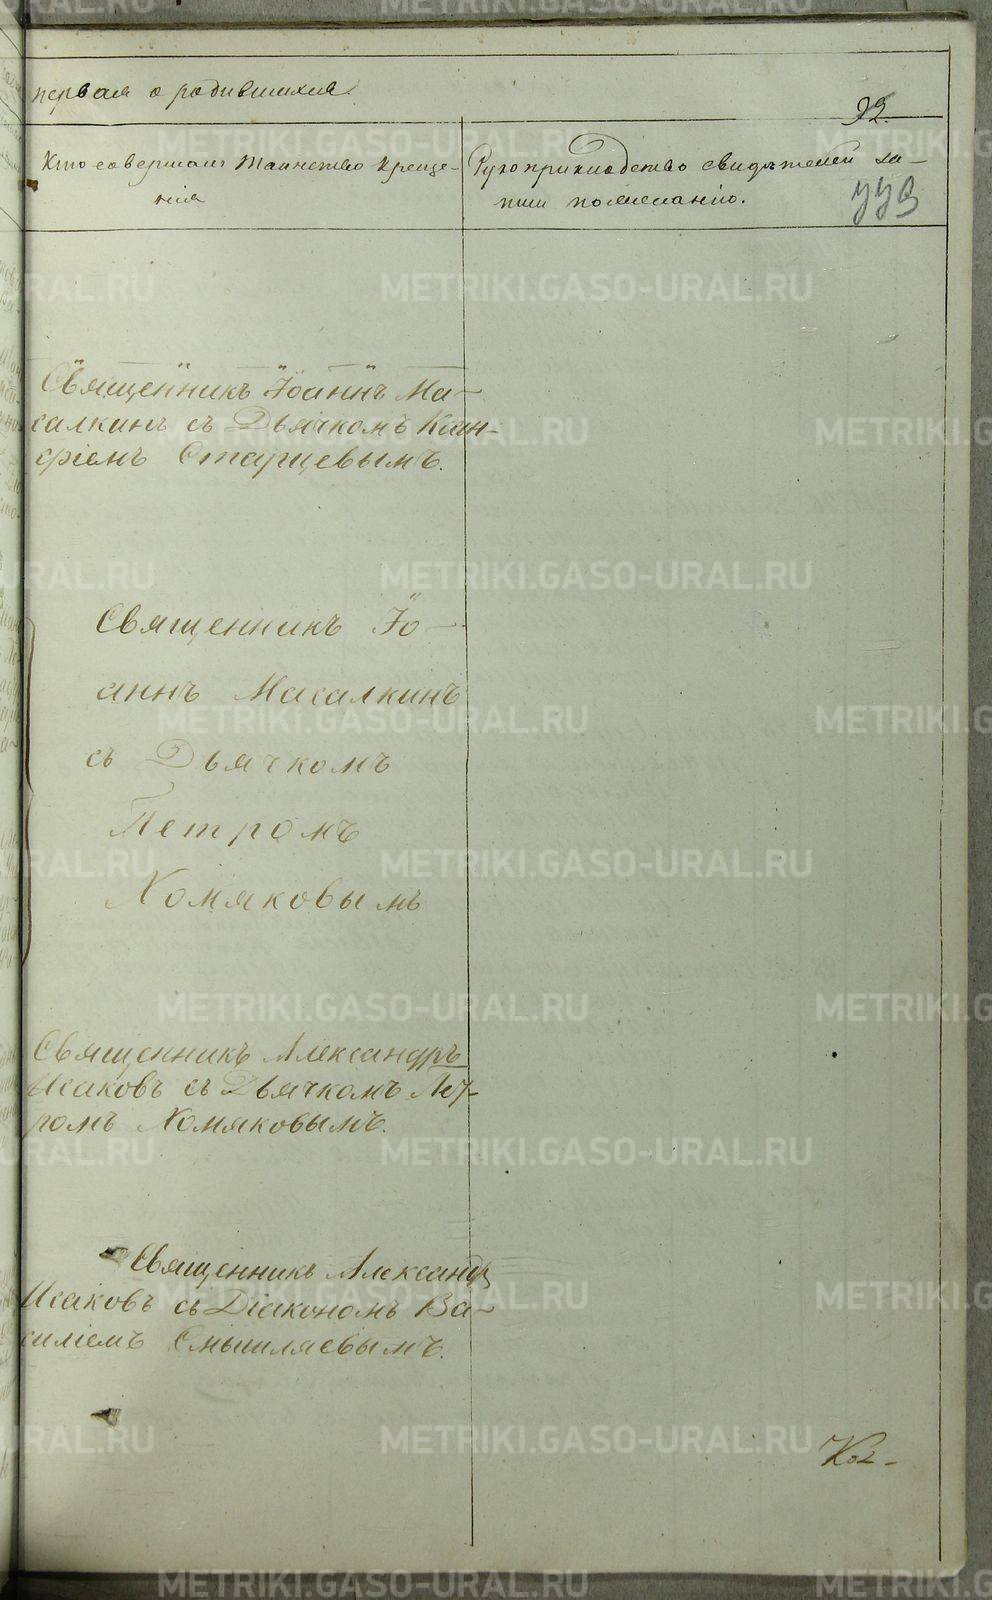 первая о родившихся.
92.
Кто совершалъ таинство креще-
нія
Рукоприкладство свидѣтелей за-
писи по желанію.
779
Священникъ Іоаннъ Ма-
салкинъ съ Дьячкомъ Ксен-
фіемъ Старцевымъ.
Священникъ Іо-
аннъ Масалкинъ
съ Дьячкомъ
Петромъ
Хомяковымъ
Священникъ Александръ
Исаковъ съ Дьячкомъ Пет-
ромъ Хомяковымъ.
Священникъ Александръ
Исаковъ съ Діакономъ Ва-
силіемъ Смышляевымъ.
METRIKI.GASO-URAL.RU